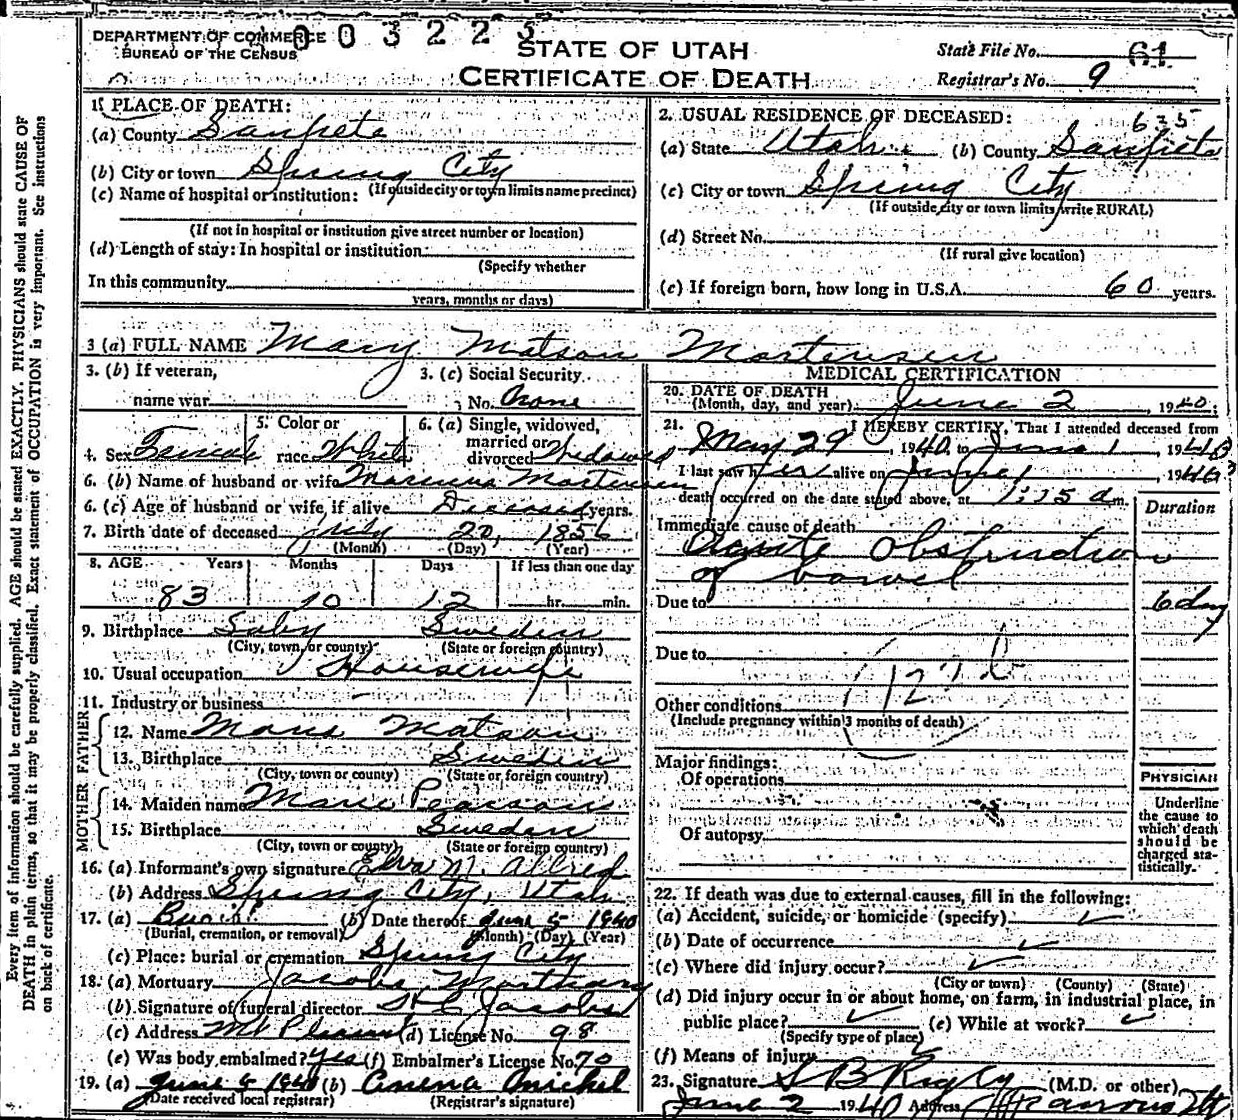 DEPARTMENT OF COMMERCE
BUREAU OF THE CENSUS
003225
STATE OF UTAH
CERTIFICATE OF DEATH
State File No. 61
Registrar's No. 9
1. PLACE OF DEATH:
(a) County Sanpete
(b) City or town Spring City
(If outside city or town limits name precinct)
(c) Name of hospital or institution:
(If not in hospital or institution give street number or location)
(d) Length of stay: In hospital or institution:
(Specify whether
In this community
years, months or days)
2. USUAL RESIDENCE OF DECEASED:
635
(a) State Utah (b) County Sanpete
(c) City or town Spring City
(If outside city or town limits write RURAL)
(d) Street No.
(If rural give location)
(e) If foreign born, how long in U.S.A. 60 years.
3 (a) FULL NAME Mary Matson Mortensen
3. (b) If veteran,
name war
3. (c) Social Security
No. None
4. Sex Female
5. Color or
race White
6. (a) Single, widowed,
married or
divorced Widowed
6. (b) Name of husband or wife Marinus Mortensen
6. (c) Age of husband or wife, if alive Deceased years.
7. Birth date of deceased July 20, 1856
(Month) (Day) (Year)
8. AGE Years Months Days If less than one day
83 10 12 hr. min.
9. Birthplace Saby Sweden
(City, town, or county) (State or foreign country)
10. Usual occupation Housewife
11. Industry or business
FATHER
12. Name Mons Matson
13. Birthplace Sweden
(City, town or county) (State or foreign country)
MOTHER
14. Maiden name Marie Pearson
15. Birthplace Sweden
(City, town or county) (State or foreign country)
16. (a) Informant's own signature Elva M. Allred
(b) Address Spring City, Utah
17. (a) Burial (b) Date thereof June 5 1940
(Burial, cremation, or removal) (Month) (Day) (Year)
(c) Place: burial or cremation Spring City
18. (a) Mortuary Jacobs Mortuary
(b) Signature of funeral director Jacobs
(c) Address Mt Pleasant (d) License No. 98
(e) Was body embalmed? yes (f) Embalmer's License No. 70
19. (a) June 6 1940 (b)
(Date received local registrar) (Registrar's signature)
MEDICAL CERTIFICATION
20. DATE OF DEATH
(Month, day, and year) June 2, 1940:
21. I HEREBY CERTIFY, That I attended deceased from
May 29, 1940, to June 1, 1940
I last saw her alive on June 1, 1940
death occurred on the date stated above, at 1:15 a m.
Duration
Immediate cause of death
Acute Obstruction
of bowel
Due to 6 day
Due to
122 b
Other conditions
(Include pregnancy within 3 months of death)
Major findings:
Of operations
Of autopsy
PHYSICIAN
Underline
the cause to
which death
should be
charged sta-
tistically.
22. If death was due to external causes, fill in the following:
(a) Accident, suicide, or homicide (specify)
(b) Date of occurrence
(c) Where did injury occur?
(City or town) (County) (State)
(d) Did injury occur in or about home, on farm, in industrial place, in
public place? (e) While at work?
(Specify type of place)
(f) Means of injury
23. Signature S B Rigby (M.D. or other)
June 2 1940 Address
Every item of information should be carefully supplied. AGE should be stated EXACTLY. PHYSICIANS should state CAUSE OF
DEATH in plain terms, so that it may be properly classified. Exact statement of OCCUPATION is very important. See instructions
on back of certificate.